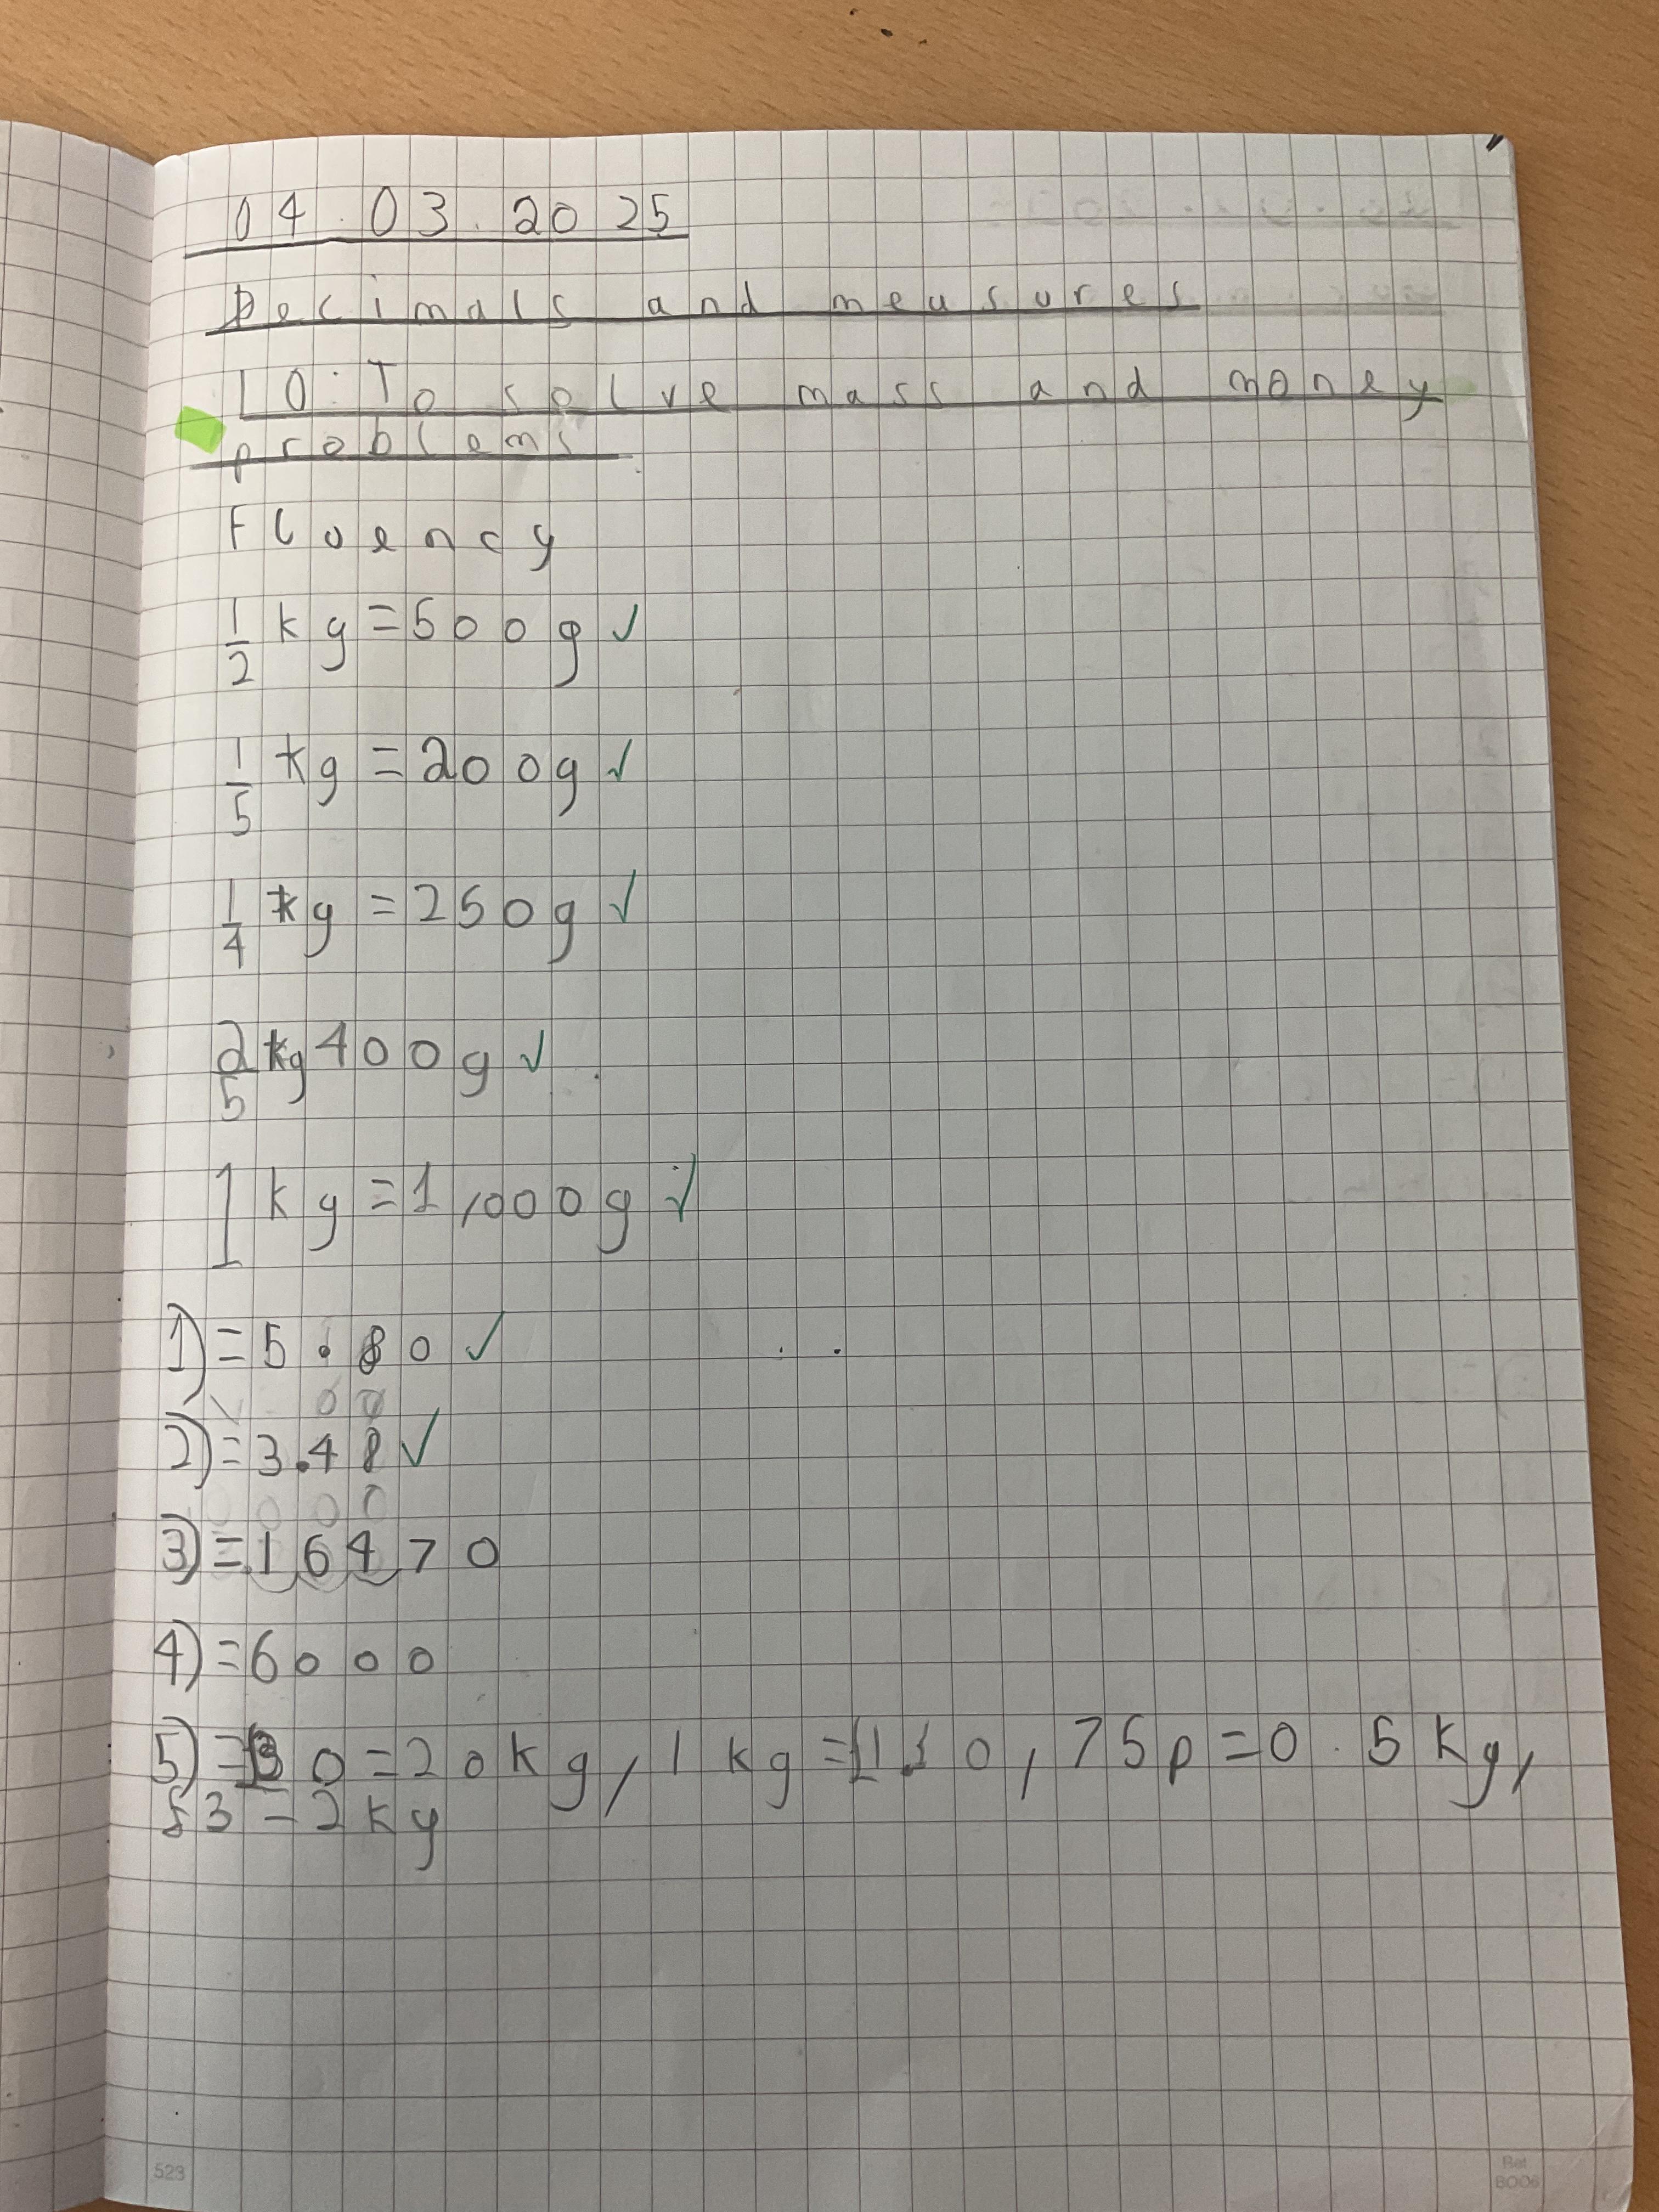 04.03.2025
Decimals and meusures
LO: To solve mass and money
problems
Fluency
1/2 kg = 500g ✓
1/5 kg = 200g ✓
1/4 kg = 250g ✓
2/5 kg 400g ✓
1 kg = 1,000g ✓
1) = 5.80 ✓
2) = 3.48 ✓
3) = 16470
4) = 6000
5) = 30 = 20kg, 1kg = £1.50, 75p = 0.5kg,
£3 = 2kg
523
Ref
BOO6